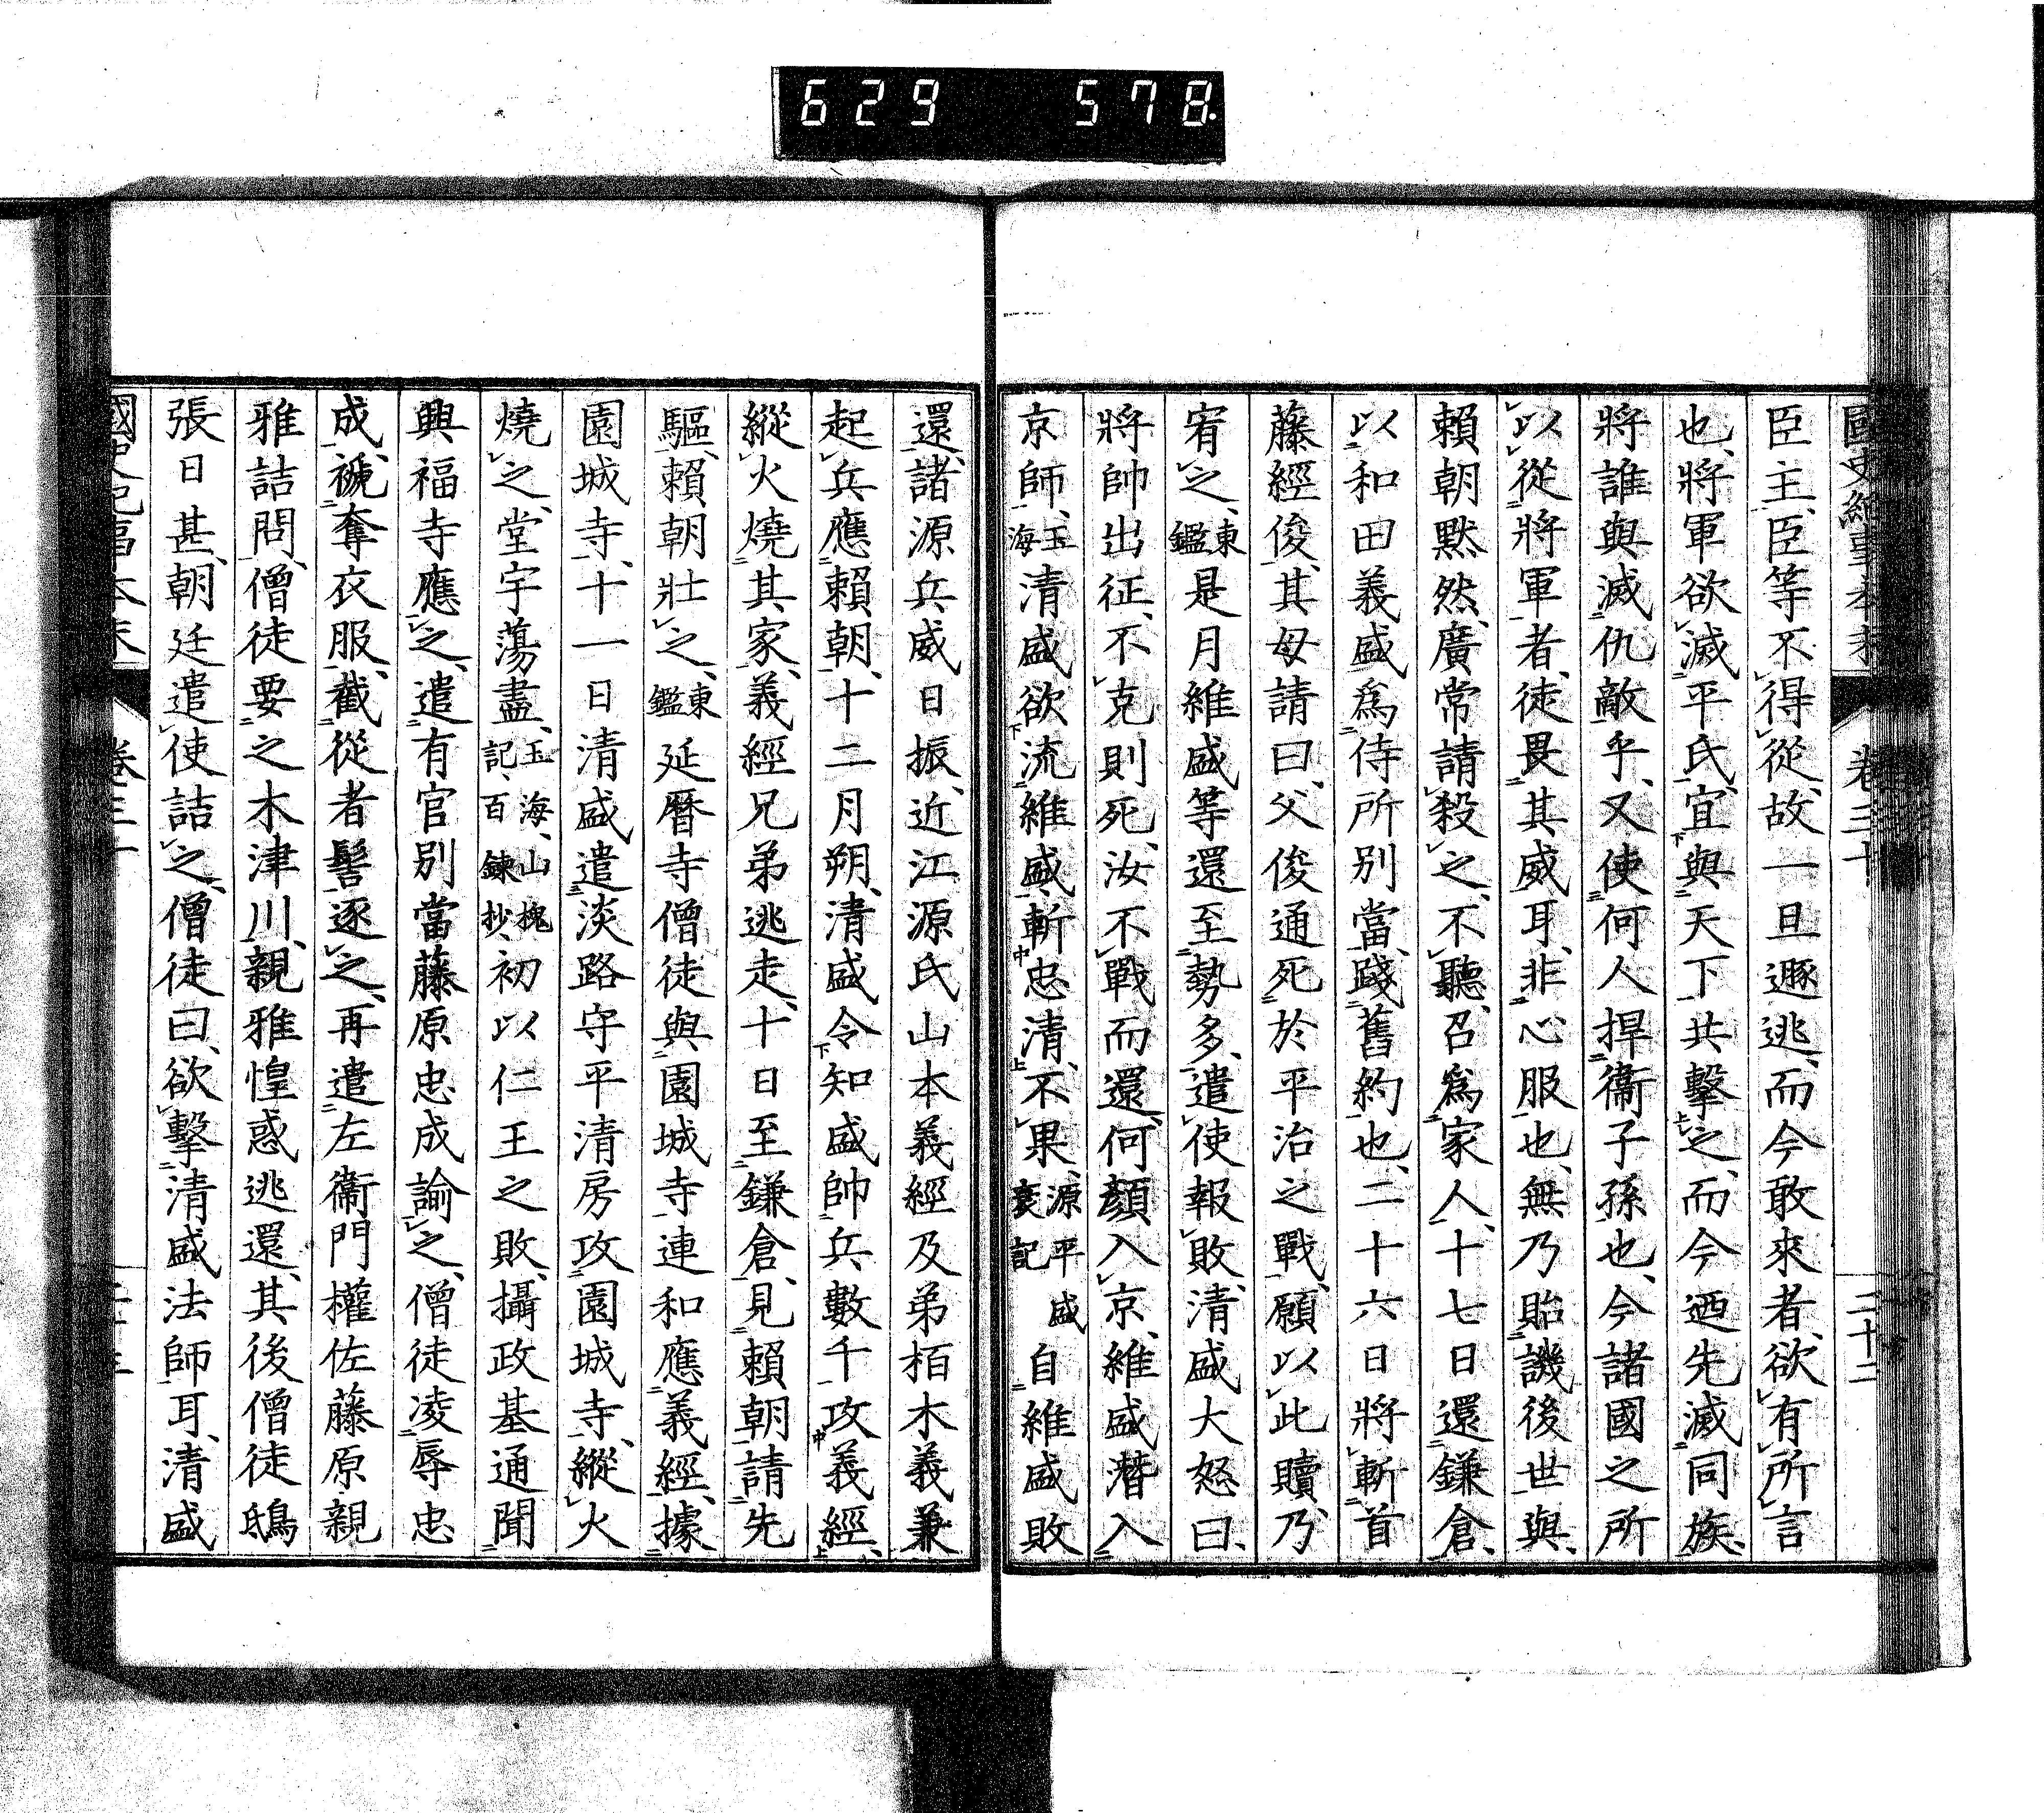 629 578.
國史紀事本末 卷三十 二十二
臣主、臣等不得從、故一旦遯逃、而今敢來者、欲有所言
也、將軍欲滅平氏、宜與天下共擊之、而今迺先滅同族、
將誰與滅仇敵乎、又使何人捍衞子孫也、今諸國之所
以從將軍者、徒畏其威耳、非心服也、無乃貽譏後世與、
賴朝默然、廣常請殺之、不聽、召爲家人、十七日還鎌倉、
以和田義盛爲侍所别當、踐舊約也、二十六日將斬首
藤經俊、其母請曰、父俊通死於平治之戰、願以此贖、乃
宥之、東鑑是月維盛等還至勢多、遣使報敗、清盛大怒曰、
將帥出征、不克則死、汝不戰而還、何顏入京、維盛潛入
京師、玉海清盛欲流維盛、斬忠清、不果、源平盛衰記自維盛敗
還、諸源兵威日振、近江源氏山本義經及弟栢木義兼
起兵應賴朝、十二月朔、清盛令知盛帥兵數千攻義經、
縱火燒其家、義經兄弟逃走、十日至鎌倉、見賴朝請先
驅、賴朝壯之、東鑑延曆寺僧徒與園城寺連和應義經、據
園城寺、十一日清盛遣淡路守平清房攻園城寺、縱火
燒之、堂宇蕩盡、玉海、山槐記、百鍊抄、初以仁王之敗、攝政基通聞
興福寺應之、遣有官别當藤原忠成諭之、僧徒凌辱忠
成、褫奪衣服、截從者髻逐之、再遣左衞門權佐藤原親
雅詰問、僧徒要之木津川、親雅惶惑逃還、其後僧徒鴟
張日甚、朝廷遣使詰之、僧徒曰、欲擊清盛法師耳、清盛
國史紀事本末 卷三十